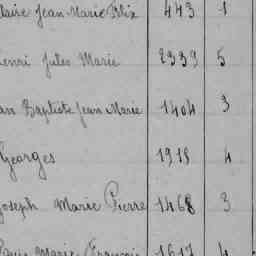 laire Jean Marie Félix 443 1
Henri Jules Marie 2339 5
an Baptiste Jean Marie 1404 3
Georges 1918 4
Joseph Marie Pierre 1468 3
Marie François 1617 4